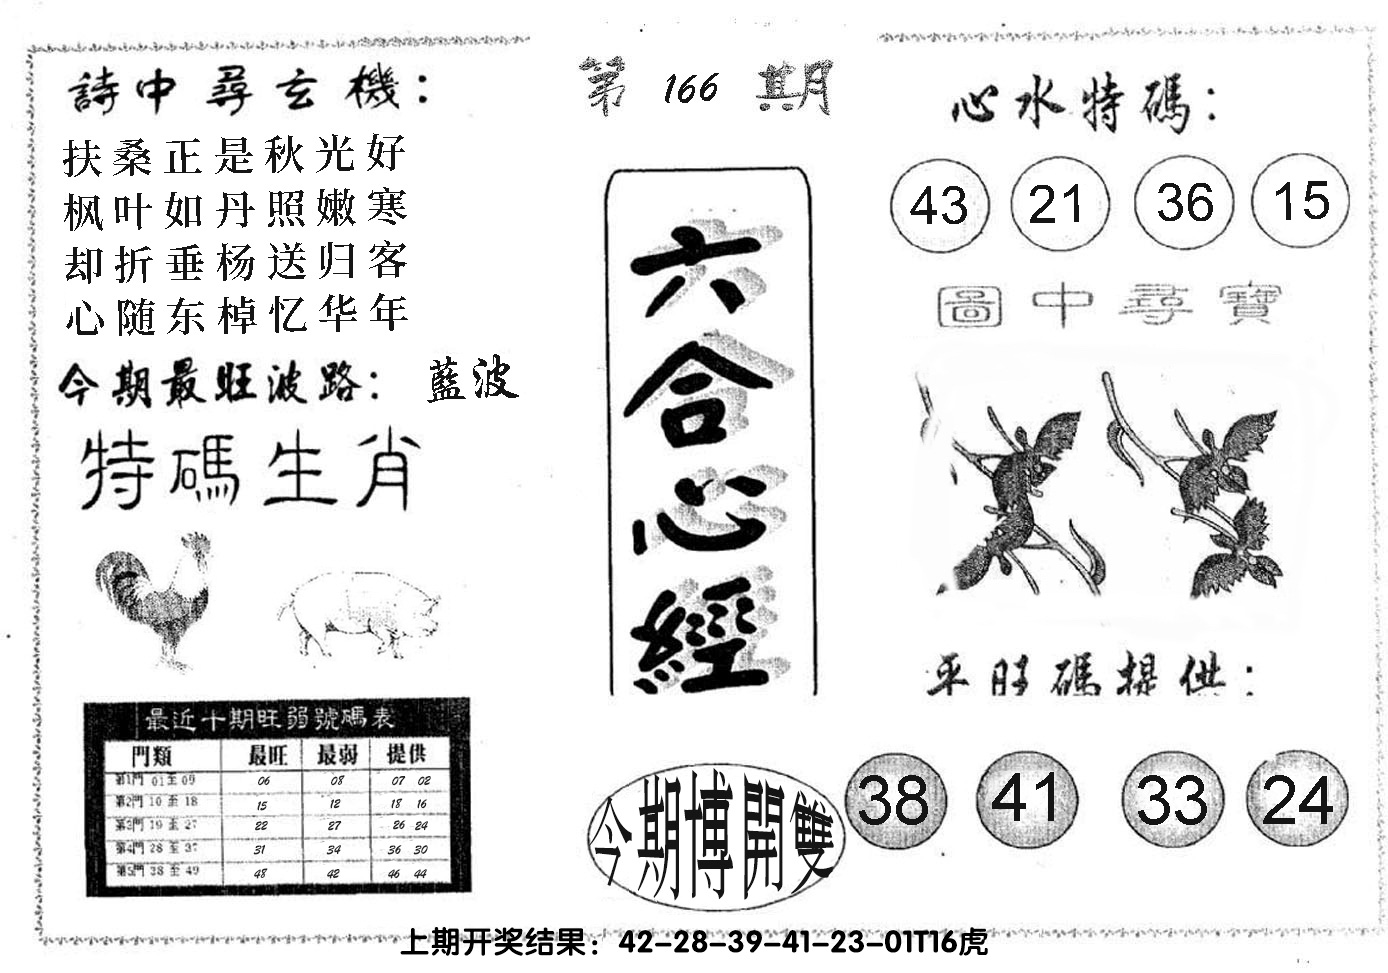 詩中尋玄機：
扶桑正是秋光好
枫叶如丹照嫩寒
却折垂杨送归客
心随东棹忆华年
今期最旺波路： 藍波
特碼生肖
最近十期旺弱號碼表
門類 最旺 最弱 提供
第1門 01至09 06 08 07 02
第2門 10至18 15 12 18 16
第3門 19至27 22 27 26 24
第4門 28至37 31 34 36 30
第5門 38至49 48 42 46 44
第 166 期
六合心經
今期博開雙
心水特碼：
43 21 36 15
圖中尋寶
平旺碼提供：
38 41 33 24
上期开奖结果：42-28-39-41-23-01T16虎